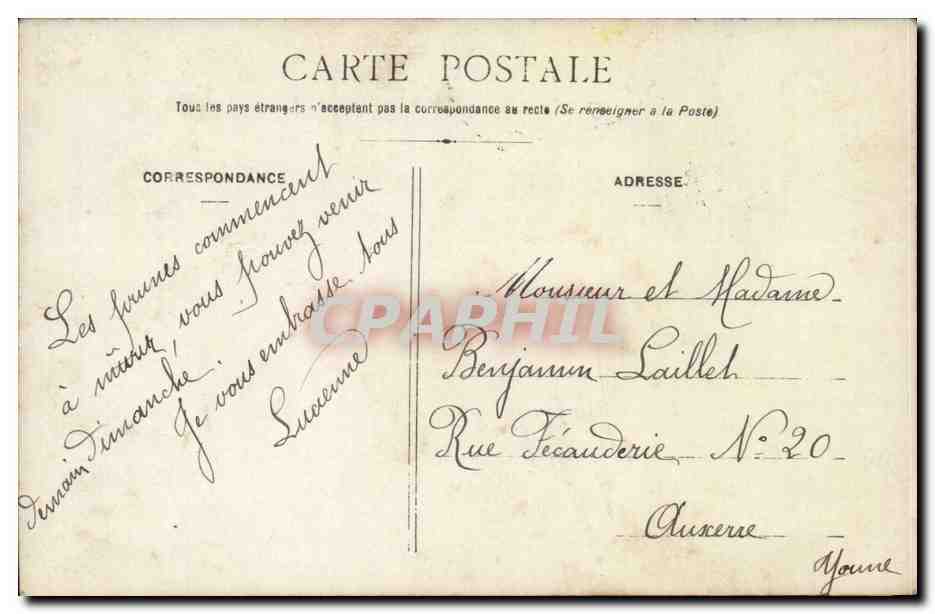 CARTE POSTALE
Tous les pays étrangers n'acceptent pas la correspondance au recto (Se renseigner a la Poste)
CORRESPONDANCE
Les prunes commencent
à mûrir, vous pouvez venir
demain Dimanche.
Je vous embrasse tous
Lucienne
ADRESSE
Monsieur et Madame
Benjamin Laillet
Rue Fécauderie N° 20
Auxerre
Yonne
CPAPHIL